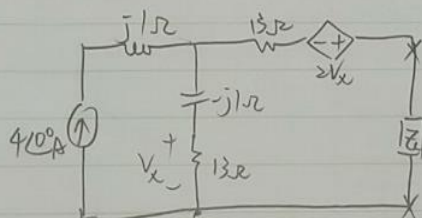 j1Ω 13Ω
- +
2Vx
-j1Ω
4∠0°A
+
Vx 13Ω
-